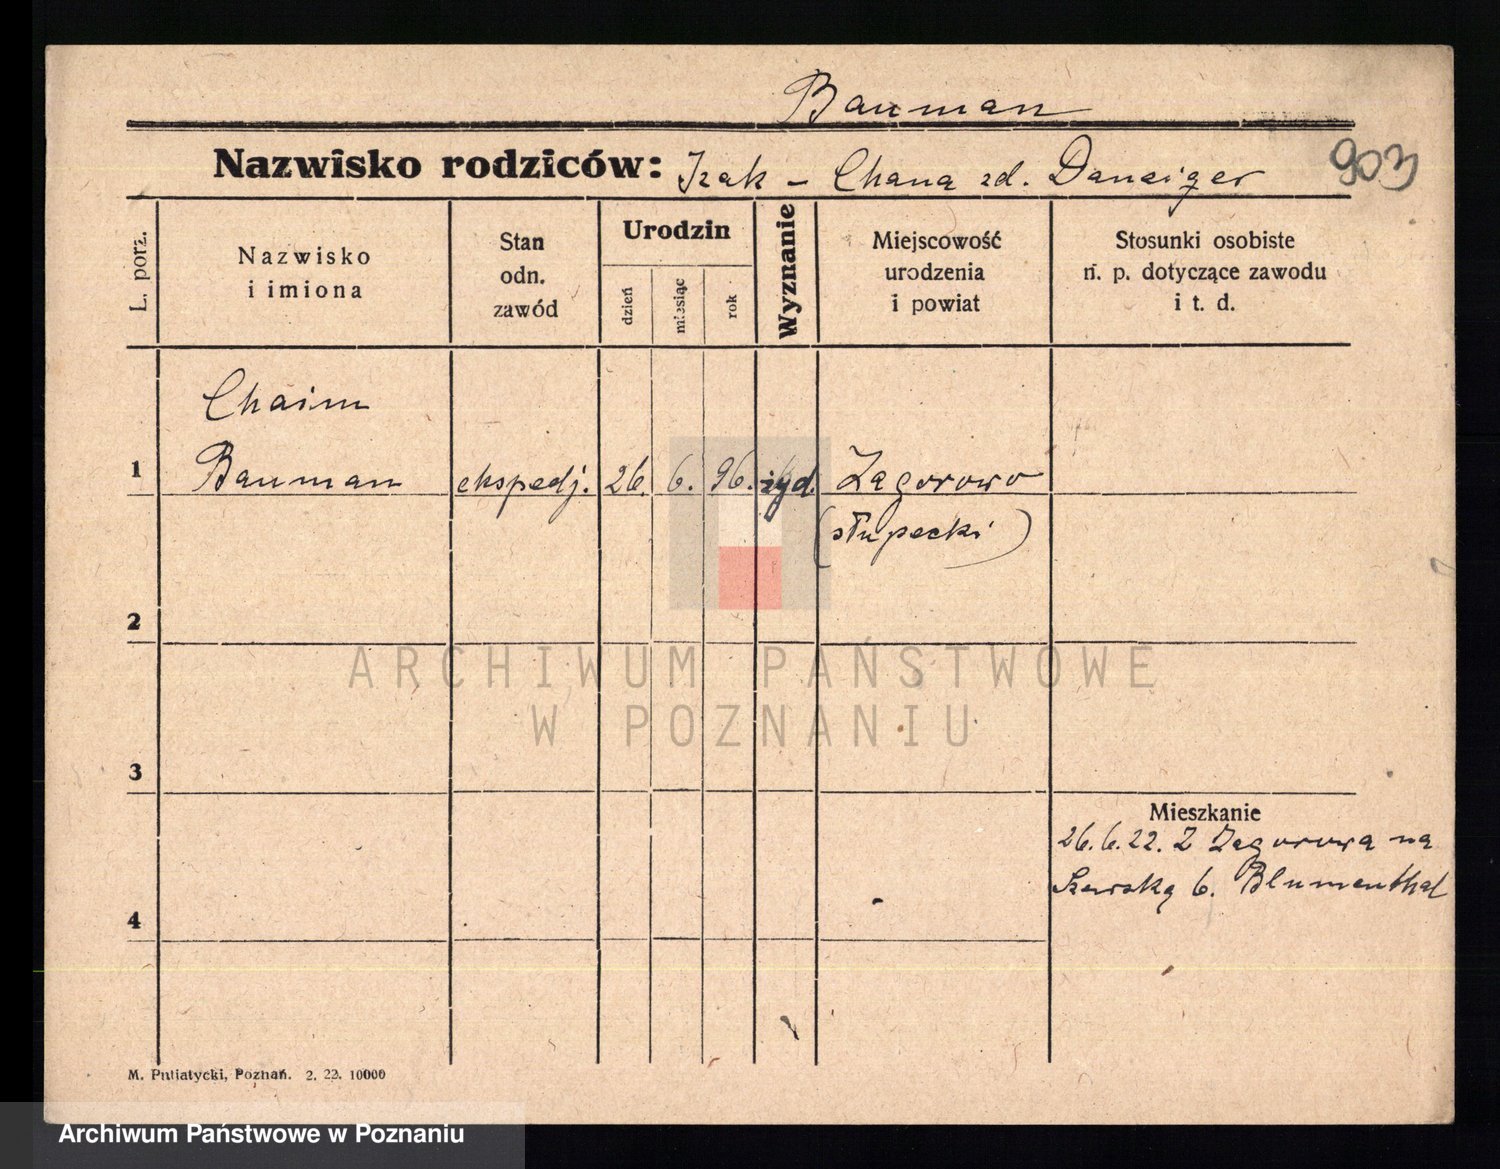 Bauman
Nazwisko rodziców: Izak - Chana zd. Danziger
903
L. porz.
Nazwisko
i imiona
Stan
odn.
zawód
Urodzin
dzień
miesiąc
rok
Wyznanie
Miejscowość
urodzenia
i powiat
Stosunki osobiste
n. p. dotyczące zawodu
i t. d.
Chaim
1 Bauman ekspedj. 26. 6. 96. żyd. Zagorowo
(słupecki)
2
ARCHIWUM PAŃSTWOWE
W POZNANIU
3
Mieszkanie
26.6.22. Z Zagorowa na
Szewską 6. Blumenthal
4
M. Putiatycki, Poznań. 2. 22. 10000
Archiwum Państwowe w Poznaniu